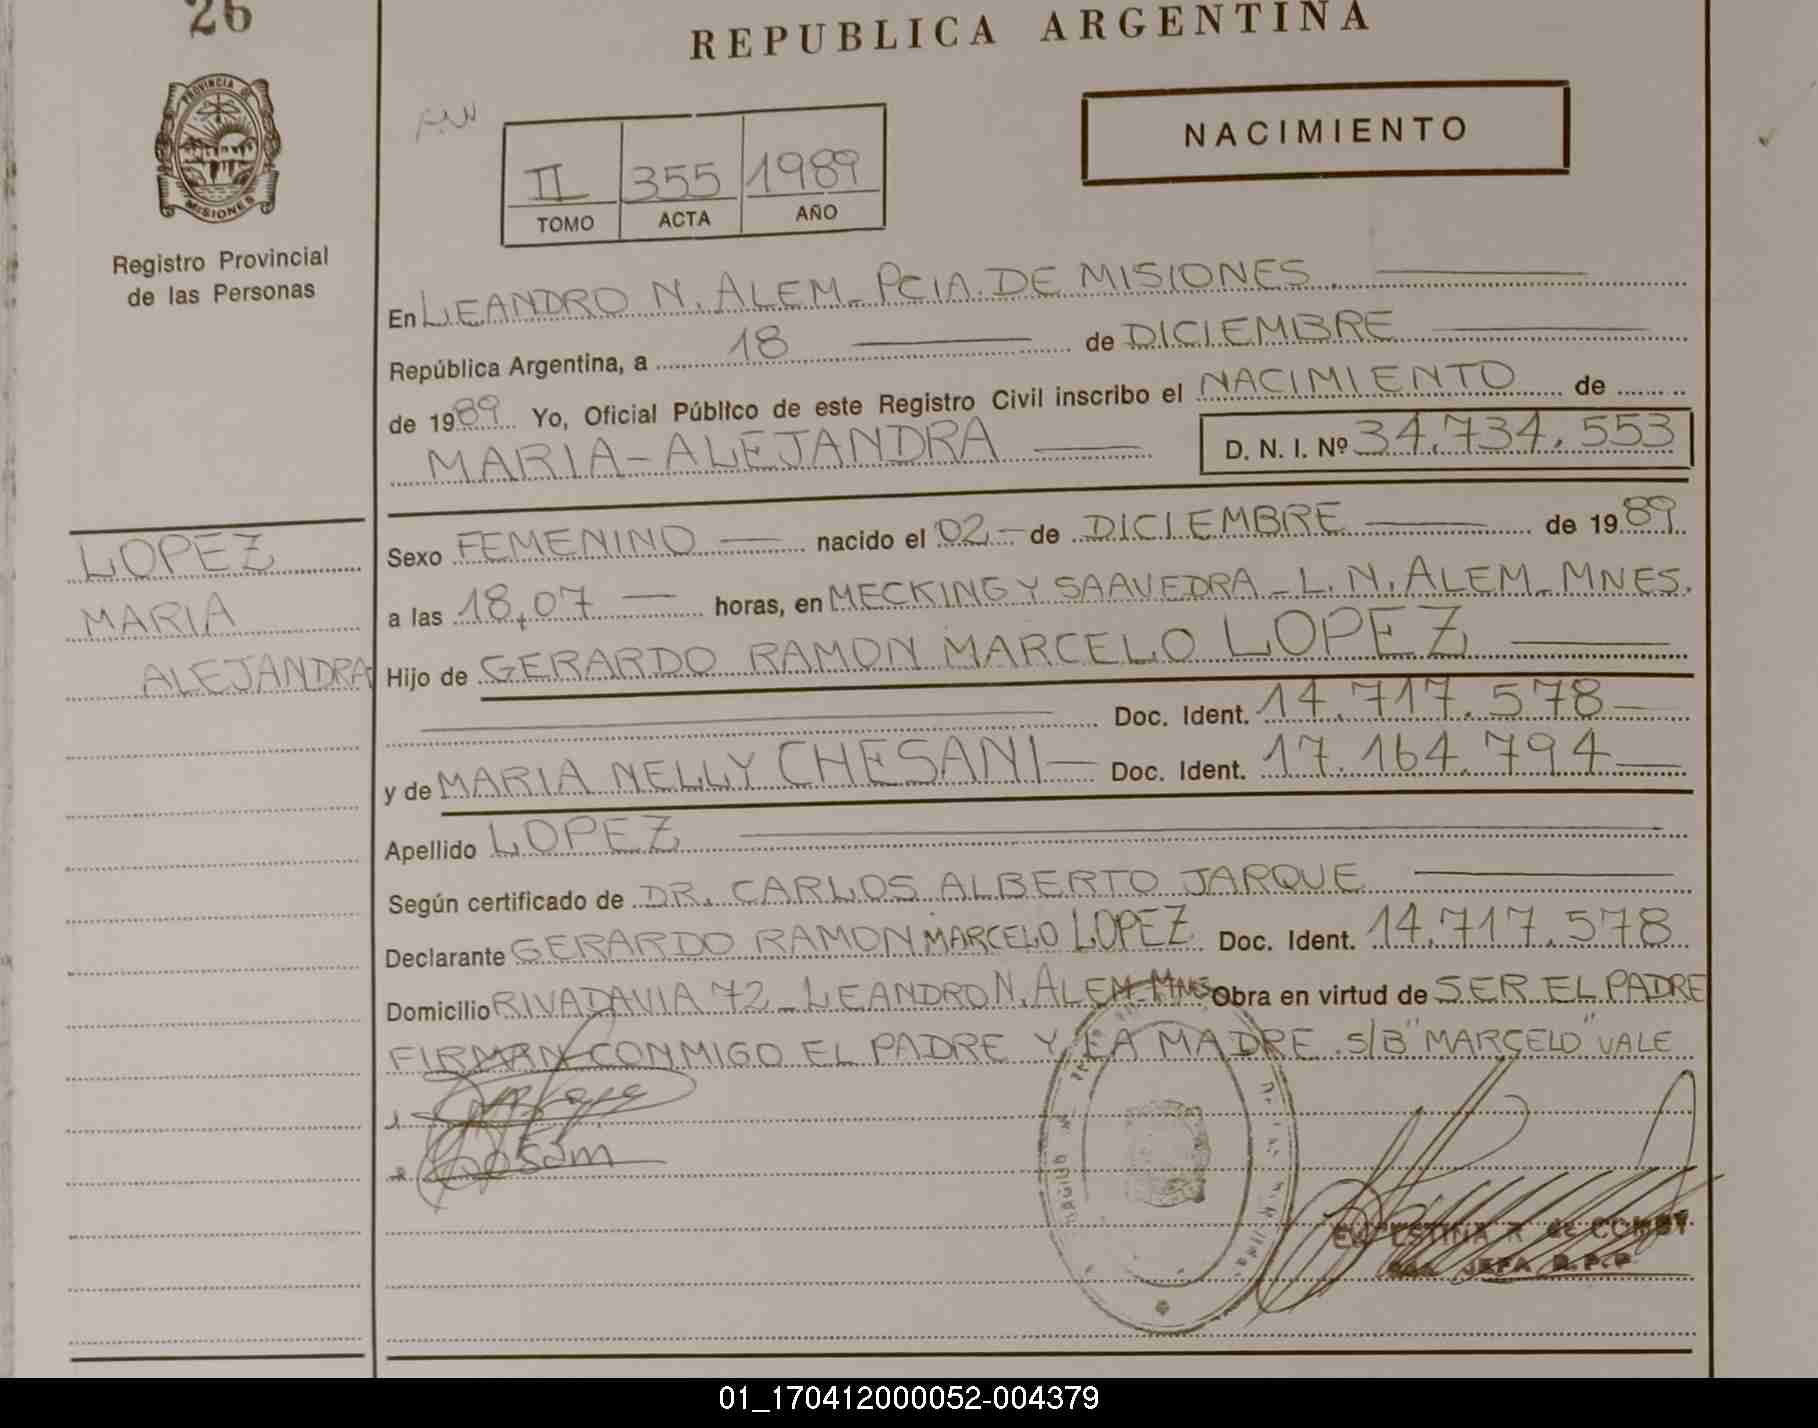 26
REPUBLICA ARGENTINA
PROVINCIA DE
MISIONES
Registro Provincial
de las Personas
NACIMIENTO
II 355 1989
TOMO ACTA AÑO
En LEANDRO N. ALEM_ PCIA. DE MISIONES.
República Argentina, a 18 de DICIEMBRE
de 1989 Yo, Oficial Público de este Registro Civil inscribo el NACIMIENTO de
MARIA-ALEJANDRA D. N. I. Nº 34.734.553
LOPEZ
MARIA
ALEJANDRA
Sexo FEMENINO nacido el 02 de DICIEMBRE de 1989
a las 18,07 horas, en MECKING Y SAAVEDRA_L.N.ALEM_MNES.
Hijo de GERARDO RAMON MARCELO LOPEZ
Doc. Ident. 14.717.578
y de MARIA NELLY CHESANI Doc. Ident. 17.164.794
Apellido LOPEZ
Según certificado de DR. CARLOS ALBERTO JARQUE
Declarante GERARDO RAMON MARCELO LOPEZ Doc. Ident. 14.717.578
Domicilio RIVADAVIA 72_LEANDRO N. ALEM_MNES Obra en virtud de SER EL PADRE
FIRMAN CONMIGO EL PADRE Y LA MADRE. S/B "MARCELO" VALE
JEFA R.P.P.
01_170412000052-004379